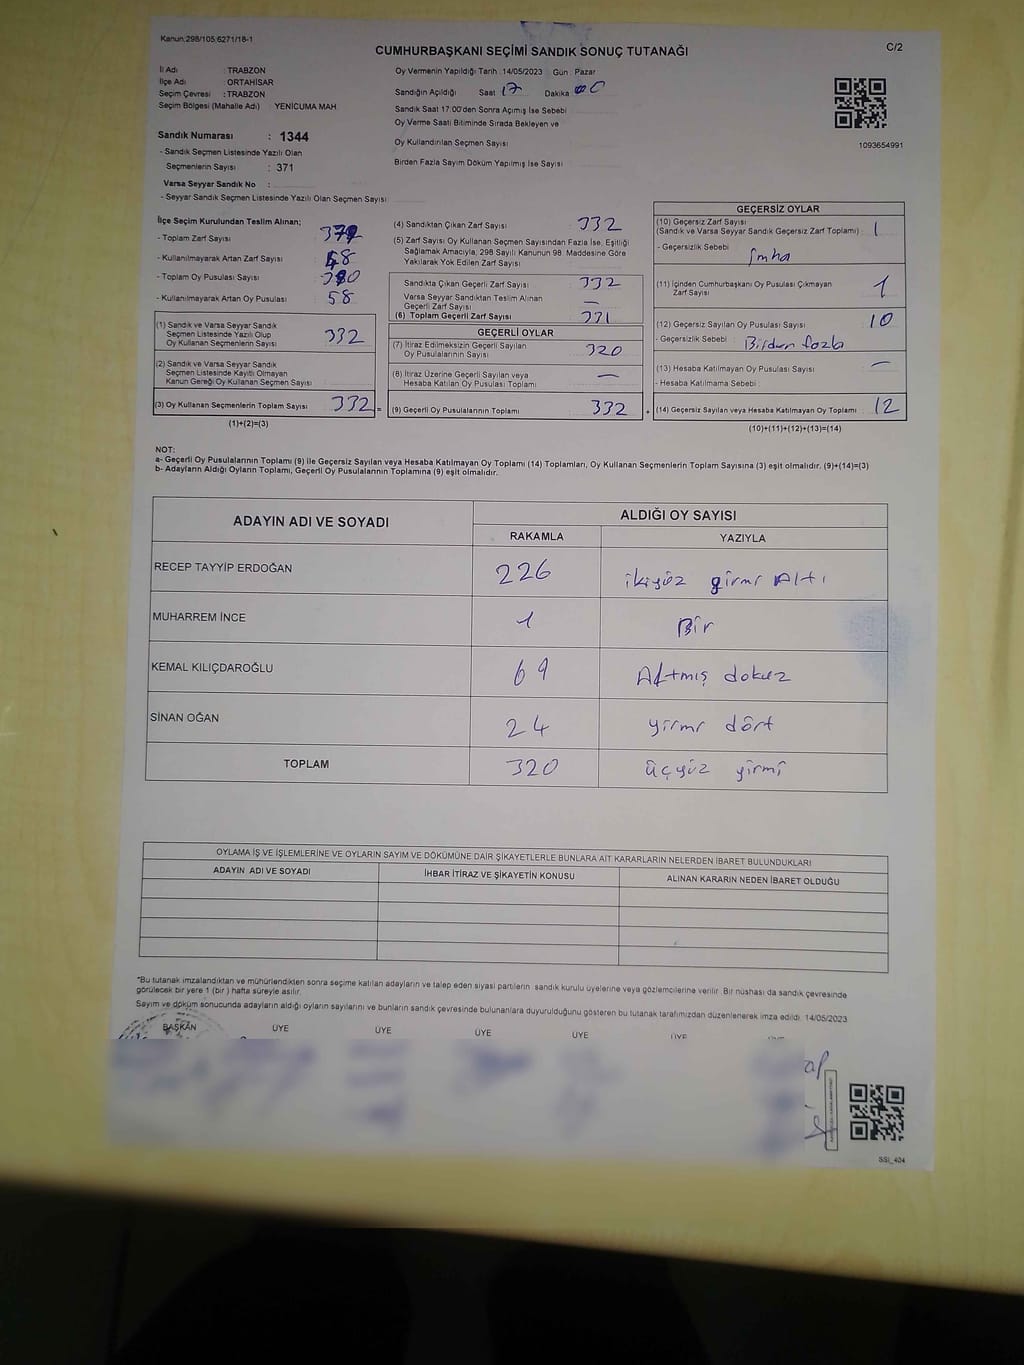 Kanun:298/105 6271/18-1
CUMHURBAŞKANI SEÇİMİ SANDIK SONUÇ TUTANAĞI
C/2
İl Adı : TRABZON
İlçe Adı : ORTAHİSAR
Seçim Çevresi : TRABZON
Seçim Bölgesi (Mahalle Adı) YENİCUMA MAH
Oy Vermenin Yapıldığı Tarih :14/05/2023 Gün : Pazar
Sandığın Açıldığı Saat 17 Dakika 00
Sandık Saat 17:00'den Sonra Açımış İse Sebebi
Oy Verme Saati Bitiminde Sırada Bekleyen ve
Oy Kullandırılan Seçmen Sayısı
Birden Fazla Sayım Döküm Yapılmış İse Sayısı
1093654991
Sandık Numarası : 1344
- Sandık Seçmen Listesinde Yazılı Olan
Seçmenlerin Sayısı : 371
Varsa Seyyar Sandık No :
- Seyyar Sandık Seçmen Listesinde Yazılı Olan Seçmen Sayısı
İlçe Seçim Kurulundan Teslim Alınan;
- Toplam Zarf Sayısı
- Kullanılmayarak Artan Zarf Sayısı 58
- Toplam Oy Pusulası Sayısı
- Kullanılmayarak Artan Oy Pusulası 58
(1) Sandık ve Varsa Seyyar Sandık
Seçmen Listesinde Yazılı Olup
Oy Kullanan Seçmenlerin Sayısı 332
(2) Sandık ve Varsa Seyyar Sandık
Seçmen Listesinde Kayıtlı Olmayan
Kanun Gereği Oy Kullanan Seçmen Sayısı
(3) Oy Kullanan Seçmenlerin Toplam Sayısı 332 =
(1)+(2)=(3)
(4) Sandıktan Çıkan Zarf Sayısı 332
(5) Zarf Sayısı Oy Kullanan Seçmen Sayısından Fazla İse, Eşitliği
Sağlamak Amacıyla, 298 Sayılı Kanunun 98. Maddesine Göre
Yakılarak Yok Edilen Zarf Sayısı
Sandıkta Çıkan Geçerli Zarf Sayısı 332
Varsa Seyyar Sandıktan Teslim Alınan
Geçerli Zarf Sayısı —
(6) Toplam Geçerli Zarf Sayısı 331
GEÇERLİ OYLAR
(7) İtiraz Edilmeksizin Geçerli Sayılan
Oy Pusulalarının Sayısı 320
(8) İtiraz Üzerine Geçerli Sayılan veya
Hesaba Katılan Oy Pusulası Toplamı —
(9) Geçerli Oy Pusulalarının Toplamı 332 +
GEÇERSİZ OYLAR
(10) Geçersiz Zarf Sayısı
(Sandık ve Varsa Seyyar Sandık Geçersiz Zarf Toplamı) 1
- Geçersizlik Sebebi imha
(11) İçinden Cumhurbaşkanı Oy Pusulası Çıkmayan
Zarf Sayısı 1
(12) Geçersiz Sayılan Oy Pusulası Sayısı 10
- Geçersizlik Sebebi Birden fazla
(13) Hesaba Katılmayan Oy Pusulası Sayısı —
- Hesaba Katılmama Sebebi
(14) Geçersiz Sayılan veya Hesaba Katılmayan Oy Toplamı 12
(10)+(11)+(12)+(13)=(14)
NOT:
a- Geçerli Oy Pusulalarının Toplamı (9) ile Geçersiz Sayılan veya Hesaba Katılmayan Oy Toplamı (14) Toplamları, Oy Kullanan Seçmenlerin Toplam Sayısına (3) eşit olmalıdır. (9)+(14)=(3)
b- Adayların Aldığı Oyların Toplamı, Geçerli Oy Pusulalarının Toplamına (9) eşit olmalıdır.
ADAYIN ADI VE SOYADI ALDIĞI OY SAYISI
RAKAMLA YAZIYLA
RECEP TAYYİP ERDOĞAN 226 ikiyüz yirmi Altı
MUHARREM İNCE 1 Bir
KEMAL KILIÇDAROĞLU 69 Altmış dokuz
SİNAN OĞAN 24 yirmi dört
TOPLAM 320 üçyüz yirmi
OYLAMA İŞ VE İŞLEMLERİNE VE OYLARIN SAYIM VE DÖKÜMÜNE DAİR ŞİKAYETLERLE BUNLARA AİT KARARLARIN NELERDEN İBARET BULUNDUKLARI
ADAYIN ADI VE SOYADI İHBAR İTİRAZ VE ŞİKAYETİN KONUSU ALINAN KARARIN NEDEN İBARET OLDUĞU
*Bu tutanak imzalandıktan ve mühürlendikten sonra seçime katılan adayların ve talep eden siyasi partilerin sandık kurulu üyelerine veya gözlemcilerine verilir. Bir nüshası da sandık çevresinde
görülecek bir yere 1 (bir) hafta süreyle asılır.
Sayım ve döküm sonucunda adayların aldığı oyların sayılarını ve bunların sandık çevresinde bulunanlara duyurulduğunu gösteren bu tutanak tarafımızdan düzenlenerek imza edildi. 14/05/2023
BAŞKAN ÜYE ÜYE ÜYE ÜYE ÜYE ÜYE
SSI_404